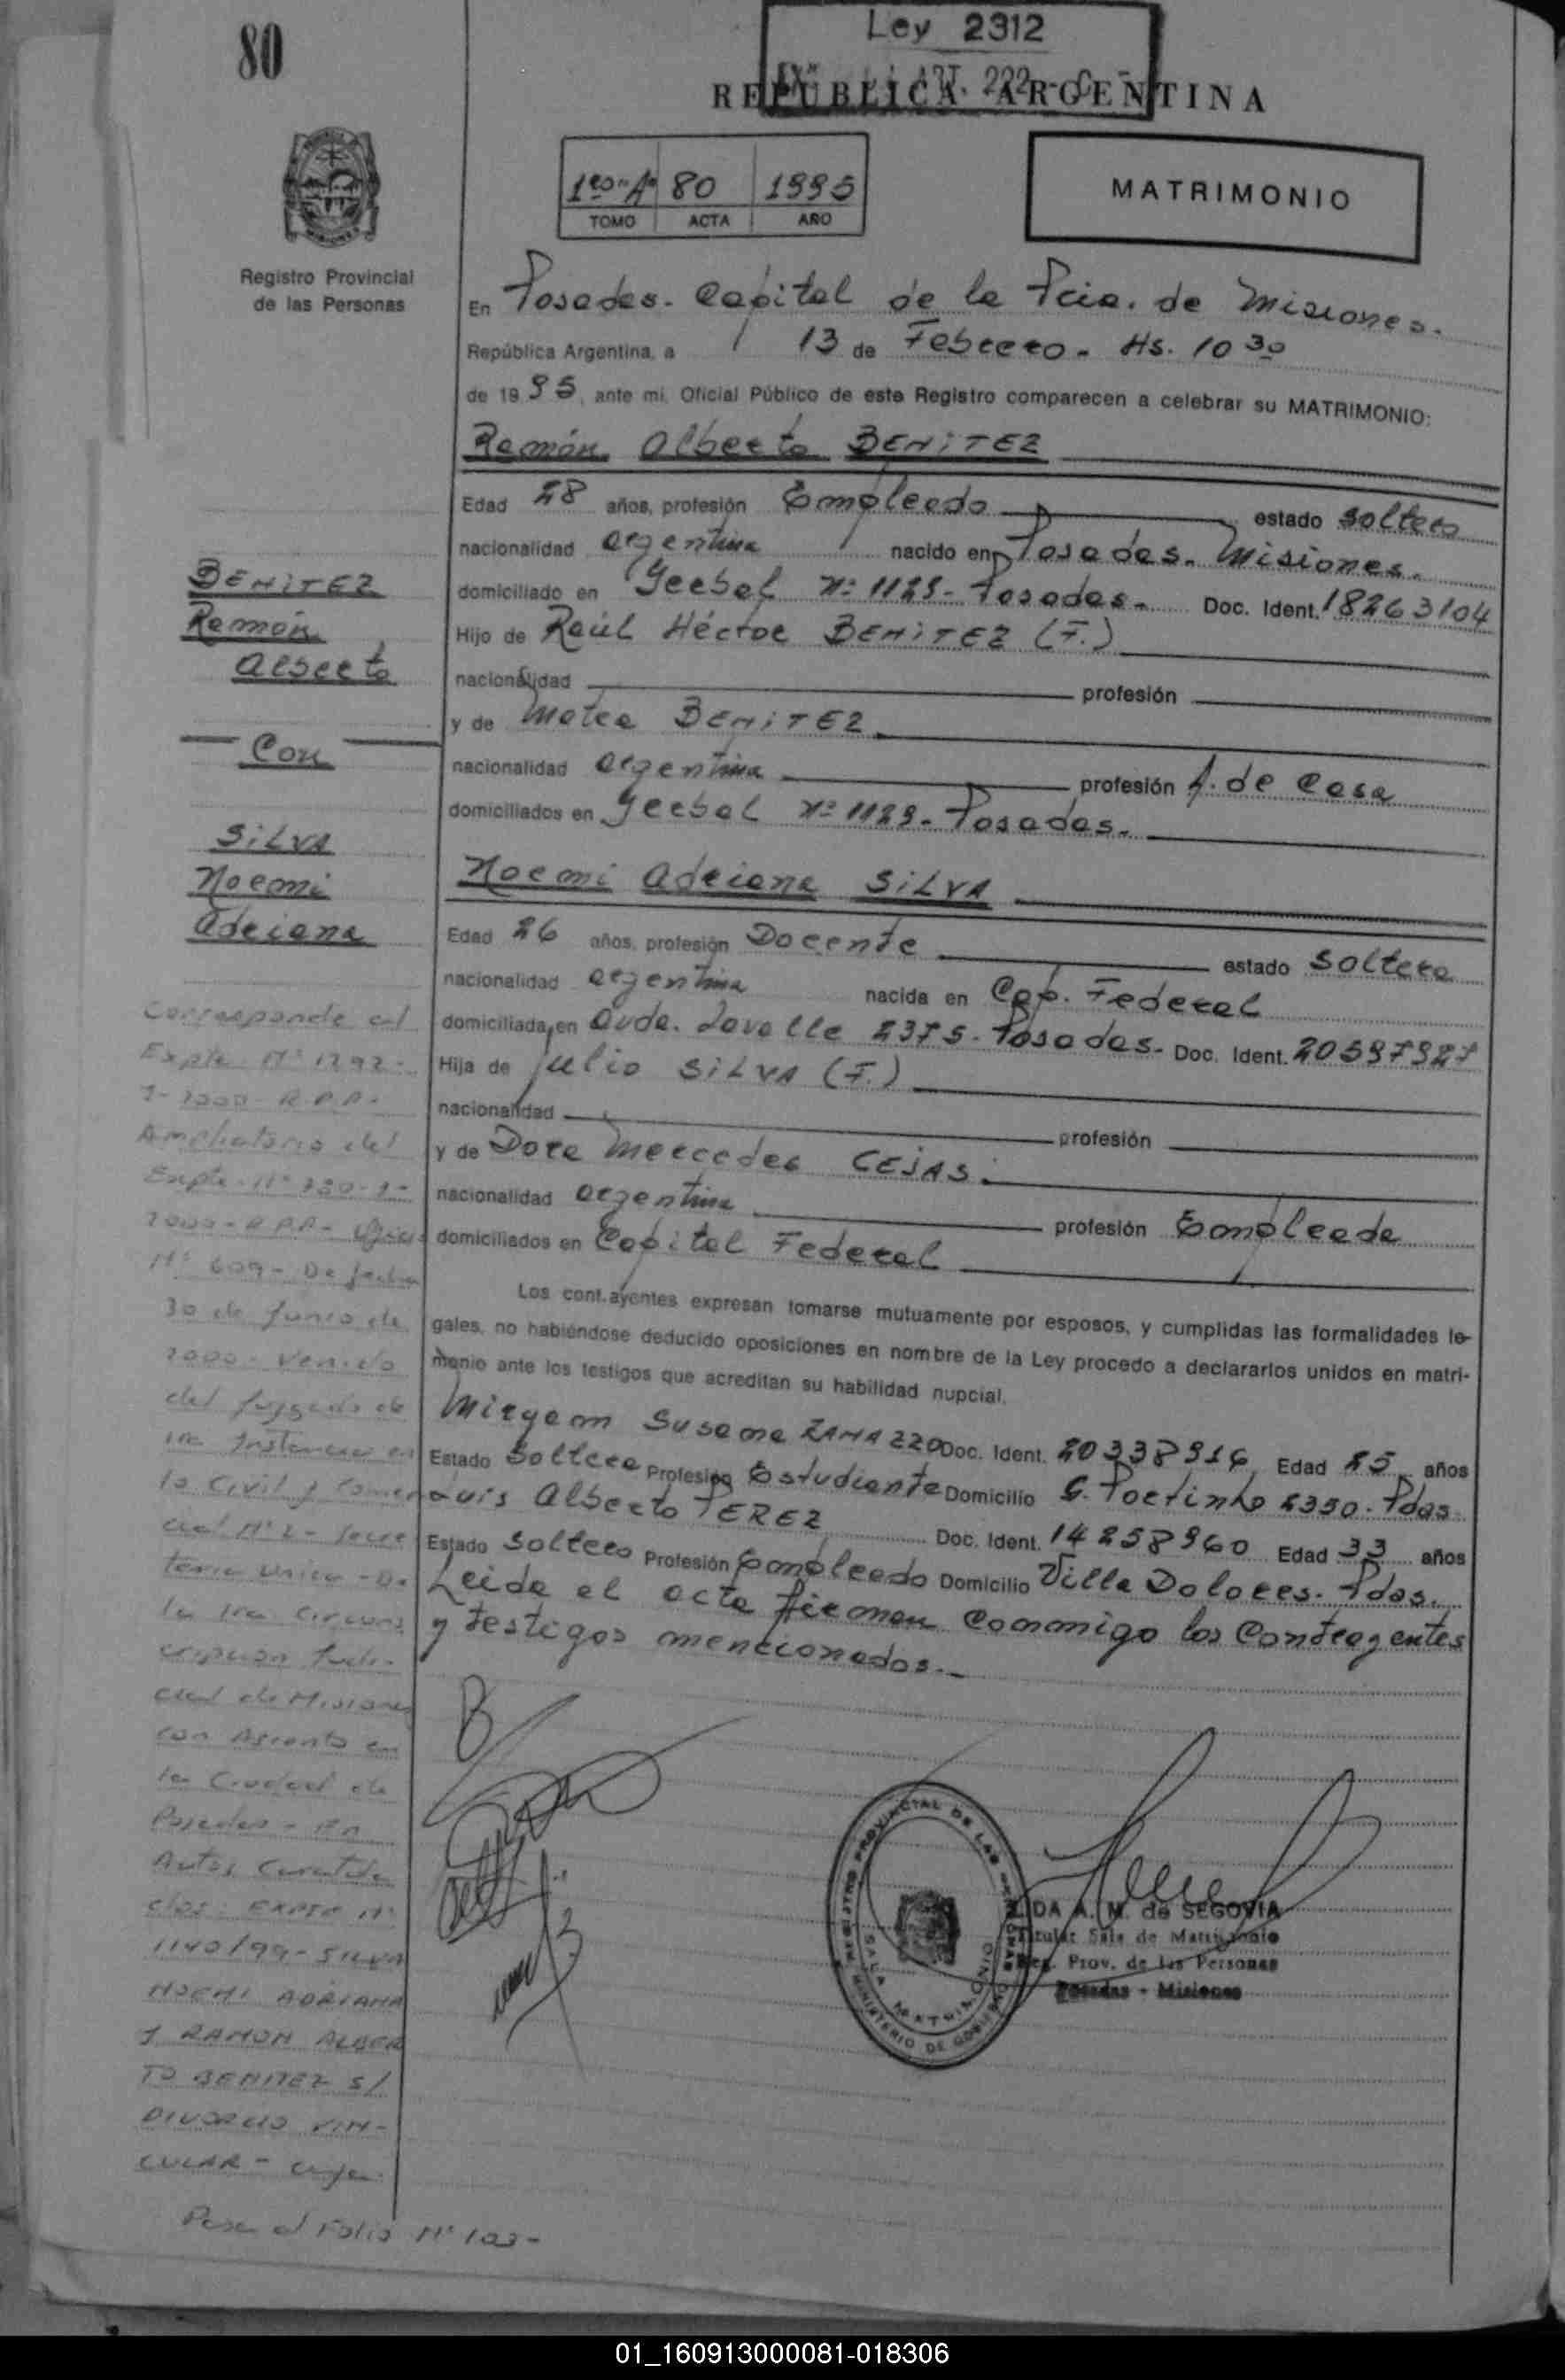 80
Ley 2312
ART. 222
REPUBLICA ARGENTINA
1ero "A" 80 1995
TOMO ACTA AÑO
MATRIMONIO
Registro Provincial
de las Personas
En Posadas. Capital de la Pcia. de Misiones.
República Argentina, a 13 de Febrero. Hs. 10 30
de 19 95, ante mi, Oficial Público de este Registro comparecen a celebrar su MATRIMONIO:
Ramón Alberto BENITEZ
Edad 28 años, profesión Empleado estado soltero
nacionalidad argentina nacido en Posadas. Misiones.
domiciliado en Yerbal Nº 1129. Posadas. Doc. Ident. 18263104
Hijo de Raúl Héctor BENITEZ (F.)
nacionalidad profesión
y de Marta BENITEZ
nacionalidad argentina profesión A. de Casa
domiciliados en Yerbal Nº 1129. Posadas.
Noemi Adriana SILVA
Edad 26 años, profesión Docente estado soltera
nacionalidad argentina nacida en Cap. Federal
domiciliada en Avda. Lavalle 2375. Posadas. Doc. Ident. 20597927
Hija de Julio SILVA (F.)
nacionalidad profesión
y de Dora Mercedes CEJAS.
nacionalidad argentina profesión Empleada
domiciliados en Capital Federal
Los cont.ayentes expresan tomarse mutuamente por esposos, y cumplidas las formalidades le-
gales, no habiéndose deducido oposiciones en nombre de la Ley procedo a declararlos unidos en matri-
monio ante los testigos que acreditan su habilidad nupcial.
Miryam Susana ZANAZZO Doc. Ident. 20338916 Edad 25 años
Estado Soltera Profesión Estudiante Domicilio G. Poetinho 2350. Pdas.
Luis Alberto PEREZ Doc. Ident. 14258960 Edad 33 años
Estado Soltero Profesión Empleado Domicilio Villa Dolores. Pdas.
Leida el acta firman conmigo los contrayentes
y testigos mencionados.
BENITEZ
Ramón
Alberto
Con
SILVA
Noemi
Adriana
Corresponde al
Expte Nº 1292-
1-2000-R.P.P.-
Ampliatorio del
Expte. Nº 380-1-
2000-R.P.P.- Oficio
Nº 609- De fecha
30 de Junio de
2000- Venido
del Juzgado de
1ra Instancia en
lo Civil y Comer
cial Nº 2- Secre
taria Unica - De
la 1ra Circuns
cripcion Judi-
cial de Misiones
con Asiento en
la Ciudad de
Posadas - En
Autos Caratula
dos: EXPTE Nº
1140/99- SILVA
NOEMI ADRIANA
Y RAMON ALBER
TO BENITEZ S/
DIVORCIO VIN-
CULAR-
Pasa al Folio Nº 103-
REGISTRO PROVINCIAL DE LAS PERSONAS
SALA MATRIMONIO
MINISTERIO DE GOBIERNO
A. M. de SEGOVIA
Titular Sala de Matrimonio
Reg. Prov. de las Personas
Posadas - Misiones
01_160913000081-018306